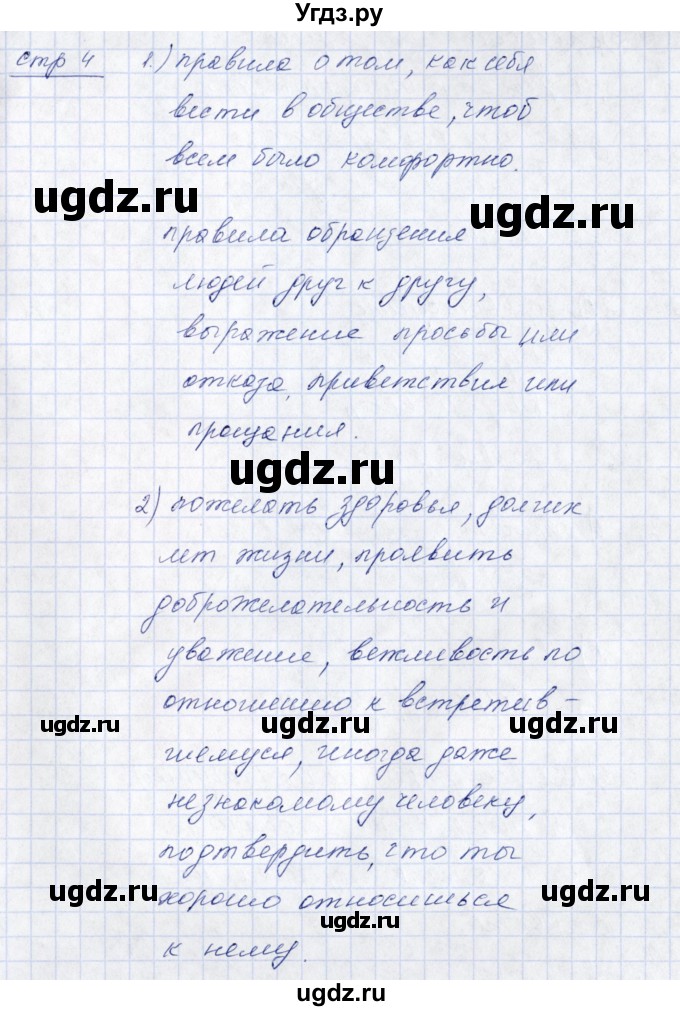 Угдз.ру
стр 4 1.) правила о том, как себя
вести в обществе, чтоб
всем было комфортно.
ugdz.ru
ugdz.ru
правила обращения
людей друг к другу,
выражение просьбы или
отказа, приветствия или
прощания.
ugdz.ru
2) пожелать здоровья, долгих
лет жизни, проявить
доброжелательность и
уважение, вежливость по
отношению к встретив-
ugdz.ru ugdz.ru ugdz.ru
шемуся, иногда даже
незнакомому человеку,
подтвердить, что ты
ugdz.ru ugdz.ru
хорошо относишься
ugdz.ru
к нему.
ugdz.ru